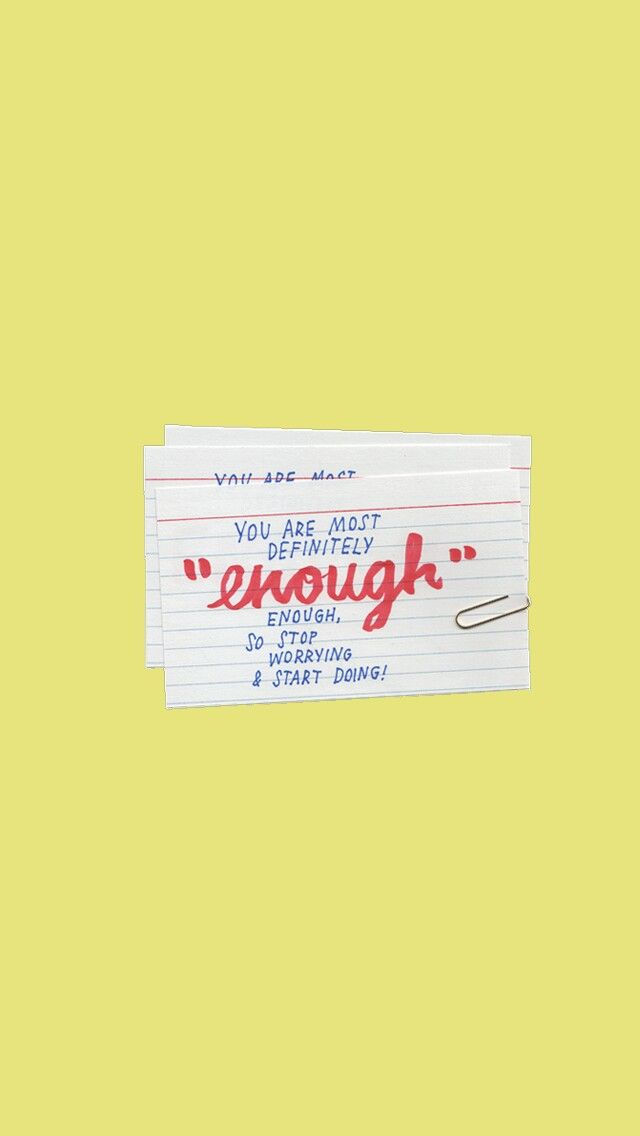 YOU ARE MOST
YOU ARE MOST
DEFINITELY
"enough"
ENOUGH,
SO STOP
WORRYING
& START DOING!